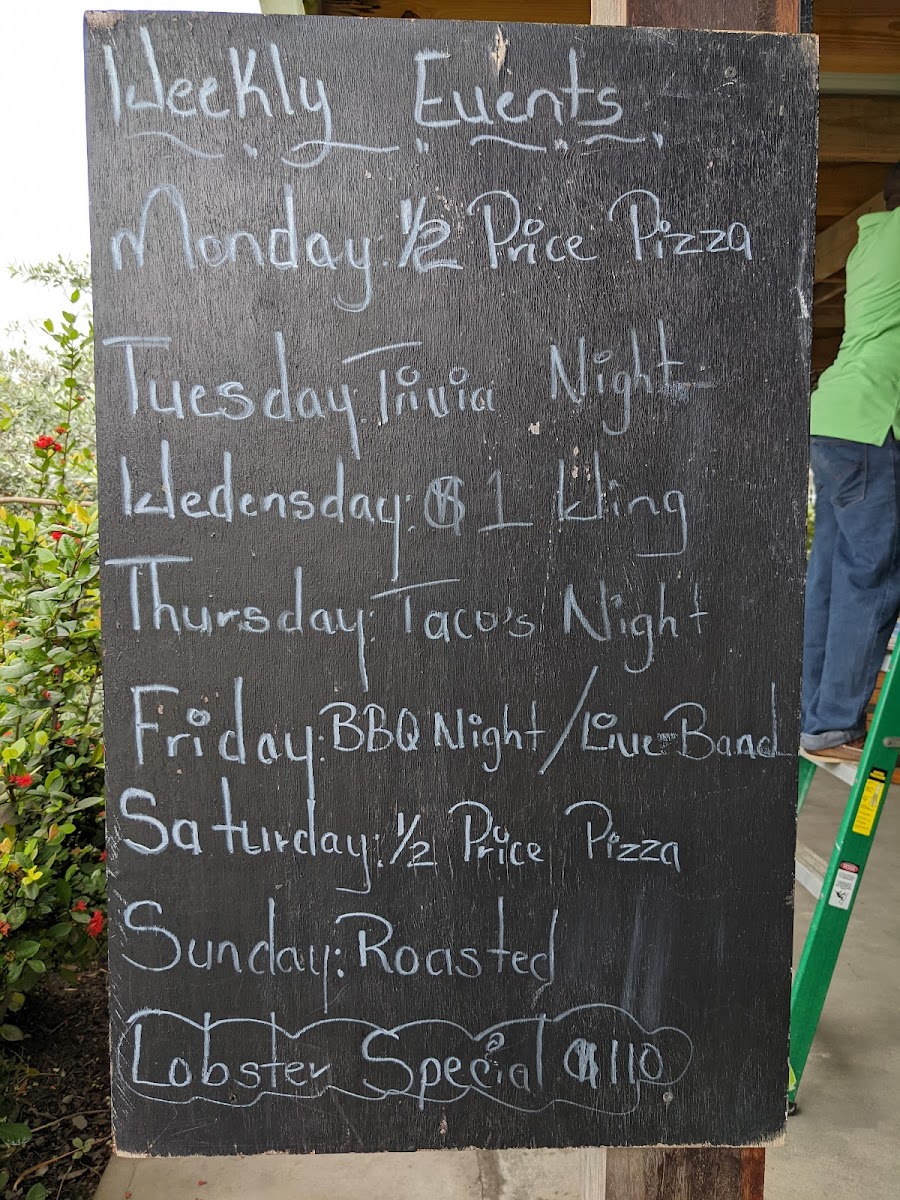 Weekly Events
Monday: 1/2 Price Pizza
Tuesday: Trivia Night
Wedensday: $1 Wing
Thursday: Taco's Night
Friday: BBQ Night / Live Band
Saturday: 1/2 Price Pizza
Sunday: Roasted
Lobster Special $110